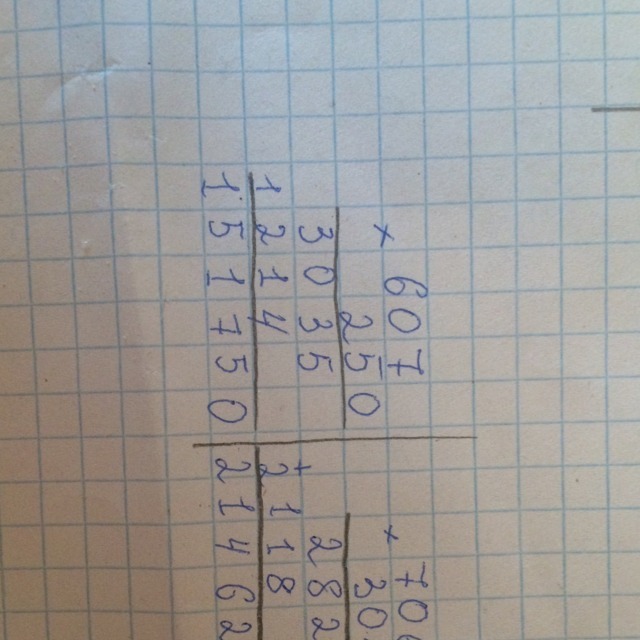 × 607
250
3035
1214
151750
× 70
30
282
+ 2118
21462